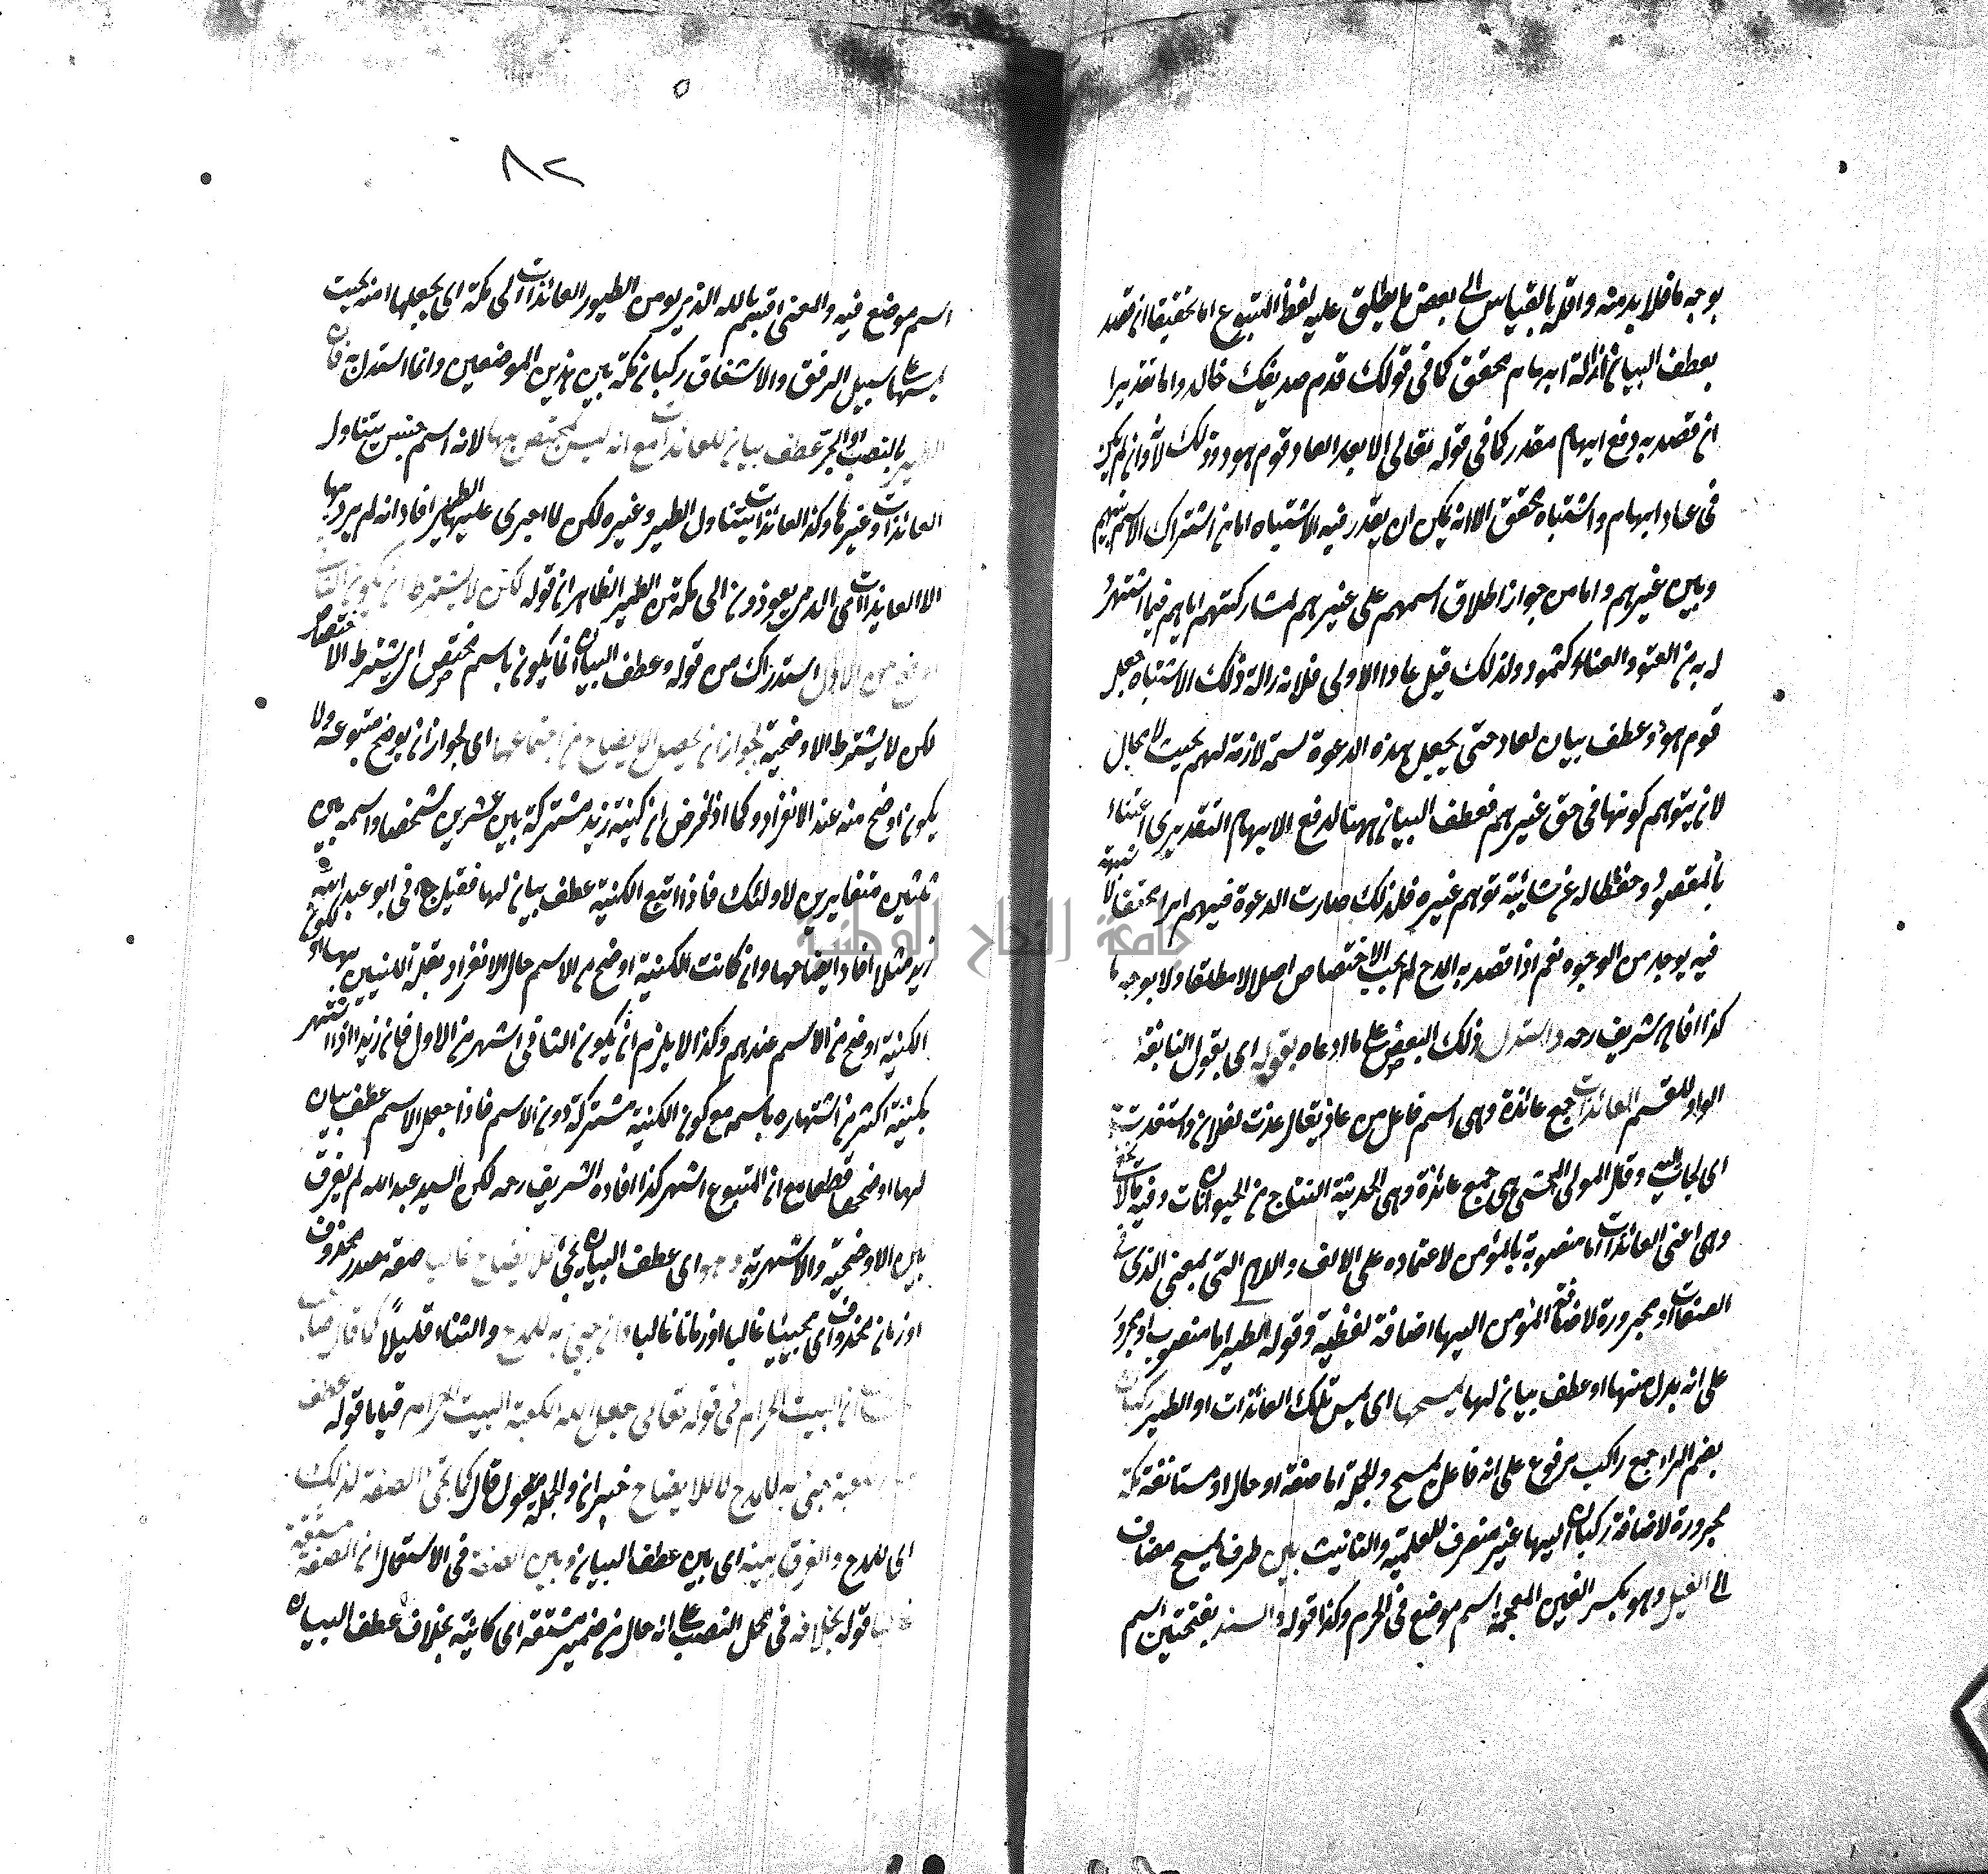 بوجه ما فلا بد منه واقله بالقياس الى بعض ما يطلق عليه لفظ المتبوع اما تحقيقا ان قصد
بعطف البيان ازالة ابهام محقق كما في قولك قدم صديقك خالد واما تقديرا
ان قصد به دفع ايهام مقدر كما في قوله تعالى الا بعدا لعاد قوم هود وذلك لانه وان لم يكن
في عاد ابهام واشتباه محقق الا انه يمكن ان يقدر فيه الاشتباه اما من اشتراك الاسم بينهم
وبين غيرهم واما من جواز اطلاق اسمهم على غيرهم لمشاركتهم اياهم فيما اشتهر
له به من العتو والعناد كثمود ولذلك قيل عادا الاولى فلازالة ذلك الاشتباه جعل
قوم هود عطف بيان لعاد حتى يجعل هذه الدعوة سمة لازمة لهم بحيث لا مجال
لان يتوهم كونها في حق غيرهم فعطف البيان ههنا لدفع الايهام التقديري اعتناء
بالمقصود وحفظا له عن شائبة توهم غيره فلذلك صارت الدعوة فيهم امرا محققا لا شبهة
فيه بوجه من الوجوه نعم اذا قصد به المدح لم يجب الاختصاص اصلا لا مطلقا ولا بوجه ما
كذا افاده الشريف رحمه واستدل ذلك البعض على ما ادعاه بقوله اي بقول النابغة
الواو للقسم العائذات جمع عائذة وهي اسم فاعل من عاذ يقال عذت لفلان واستعذت به
اي لجات اليه وقال المولى المحشي هي جمع عائذة وهي الحديثة النتاج من الحيوانات وفيه
وهي اعني العائذات اما منصوبة بالمؤمن لاعتماده على الالف واللام التي بمعنى الذي في
الصفات او مجرورة لاضافة المؤمن اليها اضافة لفظية وقوله الطير اما منصوب او مجرور
على انه بدل منها او عطف بيان لها يمسحها اي يمس تلك العائذات او الطير ركبان
بضم الراء جمع راكب مرفوع على انه فاعل يمسح والجملة اما صفة او حال او مستانفة مكة
مجرورة لاضافة ركبان اليها غير منصرف للعلمية والتانيث بين ظرف يمسح مضاف
الى الغيل وهو بكسر الغين المعجمة اسم موضع في الحرم وكذا قوله والسند بفتحتين اسم
٨٢
اسم موضع فيه والمعنى اقسم بالله الذي يومن الطيور العائذات الى مكة اي يجعلها امنة بحيث
يمسها على سبيل الرفق والاشفاق ركبان مكة بين هذين الموضعين وانما استدل به فان
الطير بالنصب او الجر عطف بيان للعائذات مع انه ليس مختص بها لانه اسم جنس يتناول
العائذات وغيرها وكذا العائذات يتناول الطير وغيره لكن لما اجرى عليها الطير افاد انه لم يرد بها
الا العايذات الى مكة من الطير الظاهر ان قوله لكن لا يشترط ان يكون الثاني
اوضح من الاول استدراك من قوله وعطف البيان انما يكون باسم مختص اي يشترط الاختصاص
لكن لا يشترط الاوضحية لجواز ان يحصل الايضاح من اجتماعهما اي لجواز ان يوضح متبوعه ولا
يكون اوضح منه عند الانفراد وكما اذا فرض ان كنية زيد مشتركة بين عشرين شخصا واسمه بين
ثلثين متغايرين لاولئك فاذا اتبع الكنية عطف بيان لها فقيل جاءني ابو عبد الله
زيد مثلا افاد ايضاحها وان كانت الكنية اوضح من الاسم حال الانفراد لكون
الكنية اوضح من الاسم عندهم وكذا لا يلزم ان يكون الثاني اشهر من الاول فان زيدا اذا اشتهر
بكنيته اكثر من اشتهاره باسمه مع كون الكنية مشتركة دون الاسم فاذا جعل الاسم عطف بيان
لها اوضحها قطعا مع ان المتبوع اشهر كذا افاده الشريف رحمه لكن السيد عبد الله لم يفرق
بين الاوضحية والاشهرية وهو اي عطف البيان يجئ للايضاح غالبا صفة مصدر محذوف
او زمان محذوف اي مجيئا غالبا او زمانا غالبا وان جئ به للمدح والثناء قليلا كما قال صاحب
الكشاف ان البيت الحرام في قوله تعالى جعل الله الكعبة البيت الحرام قياما قوله عطف
جئ به للمدح لا للايضاح خبر ان والجملة مقول قال كما تجئ الصفة لذلك
اي للمدح والفرق بينه اي بين عطف البيان وبين الصفة في الاستعمال ان الصفة مشتقة
غالبا قوله بخلافه في محل النصب على انه حال من ضمير مشتقة اي كائنة بخلاف عطف البيان
جامعة النجاح الوطنية